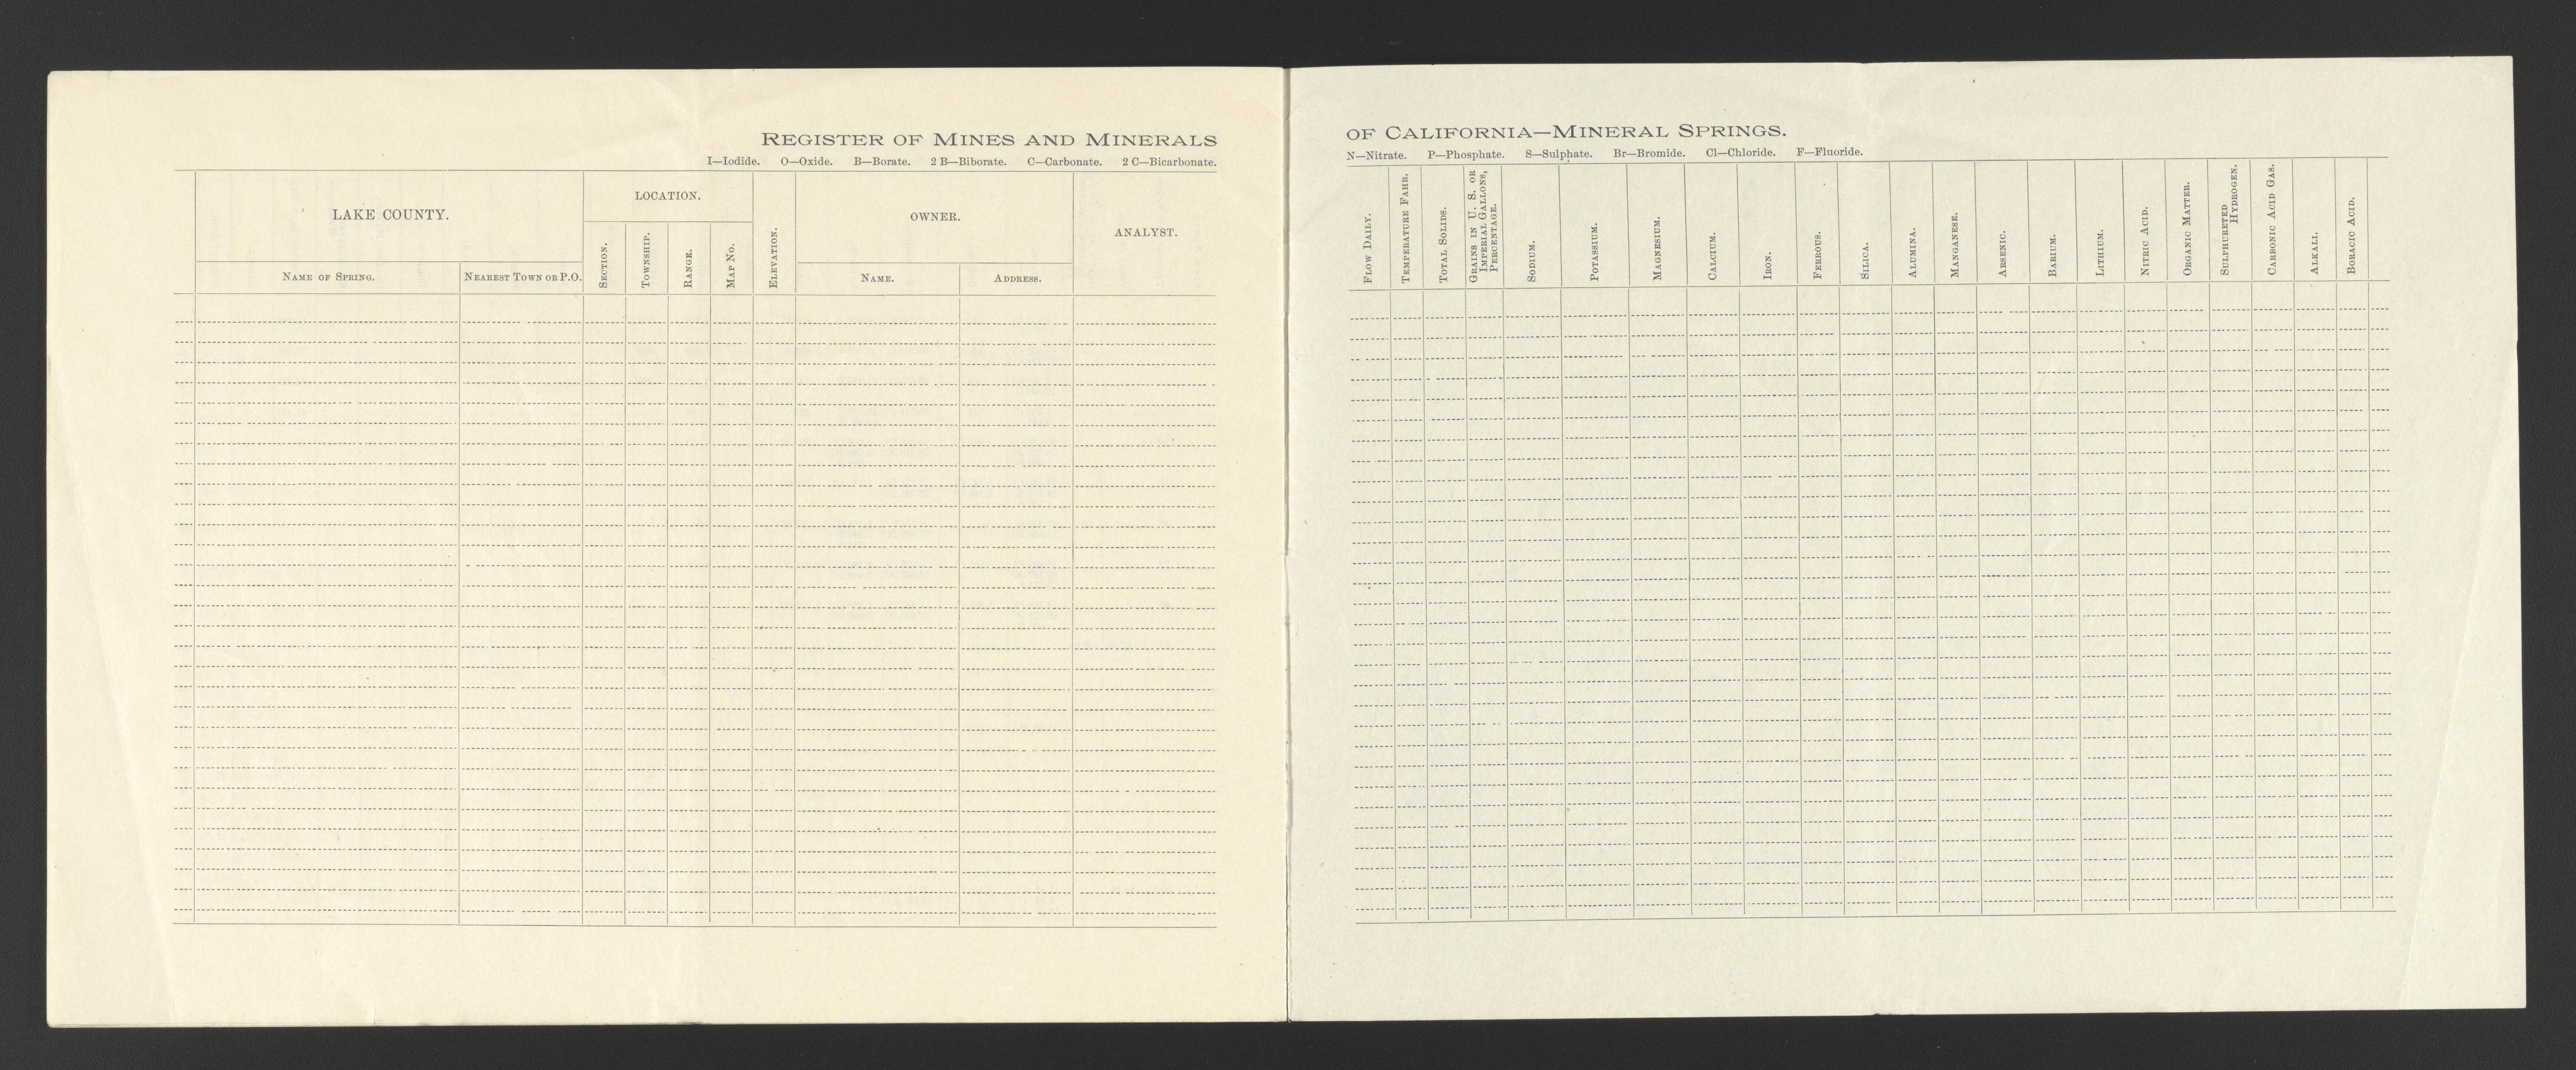 REGISTER OF MINES AND MINERALS
I—Iodide. O—Oxide. B—Borate. 2 B—Biborate. C—Carbonate. 2 C—Bicarbonate.
LAKE COUNTY.
LOCATION.
OWNER.
ANALYST.
NAME OF SPRING.
NEAREST TOWN OR P.O.
SECTION.
TOWNSHIP.
RANGE.
MAP NO.
ELEVATION.
NAME.
ADDRESS.
OF CALIFORNIA—MINERAL SPRINGS.
N—Nitrate. P—Phosphate. S—Sulphate. Br—Bromide. Cl—Chloride. F—Fluoride.
FLOW DAILY.
TEMPERATURE FAHR.
TOTAL SOLIDS.
GRAINS IN U. S. OR
IMPERIAL GALLONS,
PERCENTAGE.
SODIUM.
POTASSIUM.
MAGNESIUM.
CALCIUM.
IRON.
FERROUS.
SILICA.
ALUMINA.
MANGANESE.
ARSENIC.
BARIUM.
LITHIUM.
NITRIC ACID.
ORGANIC MATTER.
SULPHURETED
HYDROGEN.
CARBONIC ACID GAS.
ALKALI.
BORACIC ACID.